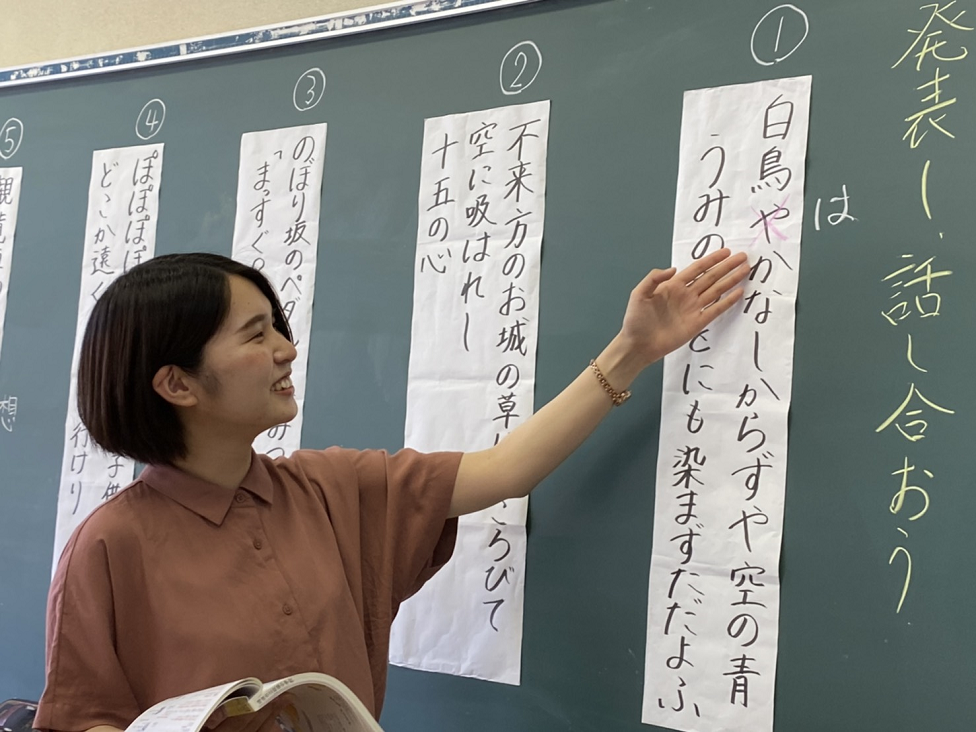 発表し、話し合おう
①
は
白鳥やかなしからずや空の青
うみの にも染まずただよふ
②
不来方のお城の草 ころびて
空に吸はれし
十五の心
③
のぼり坂のペダ
「まっすぐ
④
ぽぽぽぽ 子供
どこか遠く 行けり
⑤
想